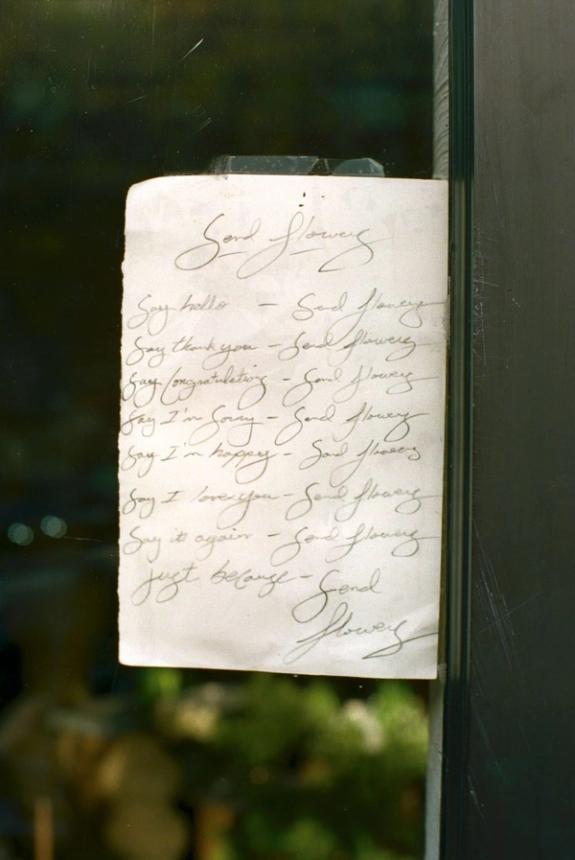 Send flowers
Say hello - Send flowers
Say thank you - Send flowers
Say Congratulations - Send flowers
Say I'm Sorry - Send flowers
Say I'm happy - Send flowers
Say I love you - Send flowers
Say it again - Send flowers
Just because - Send
flowers